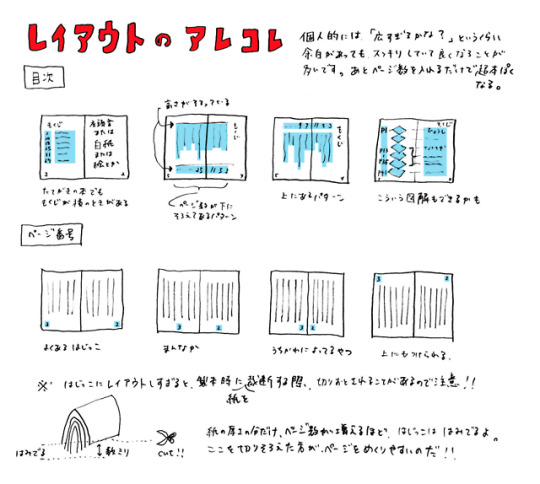 レイアウトのアレコレ
個人的には「広すぎるかな?」というくらい
余白があっても、スッキリしていて良くなることが
多いです。あとページ数を入れるだけで超本ぽく
なる。
目次
もくじ
本扉
または
白紙
または
絵とか
たてがきの本でも
もくじが横のときがある
高さがそろっている
もくじ
ページ数が下に
そろえてあるパターン
もくじ
上にあるパターン
もくじ
こういう図解もできるかも
ページ番号
3 2
よくあるはじっこ
3 2
まんなか
3 2
うちがわによってるやつ
3 2
上にもつけられる。
※ はじっこにレイアウトしすぎると、製本時に裁断する際、切りおとされることがあるので注意!!
紙を
はみでる
数ミリ
cut!!
紙の厚さの分だけ、ページ数が増えるほど、はじっこははみでるよ。
ここを切りそろえた方が、ページをめくりやすいのだ!!